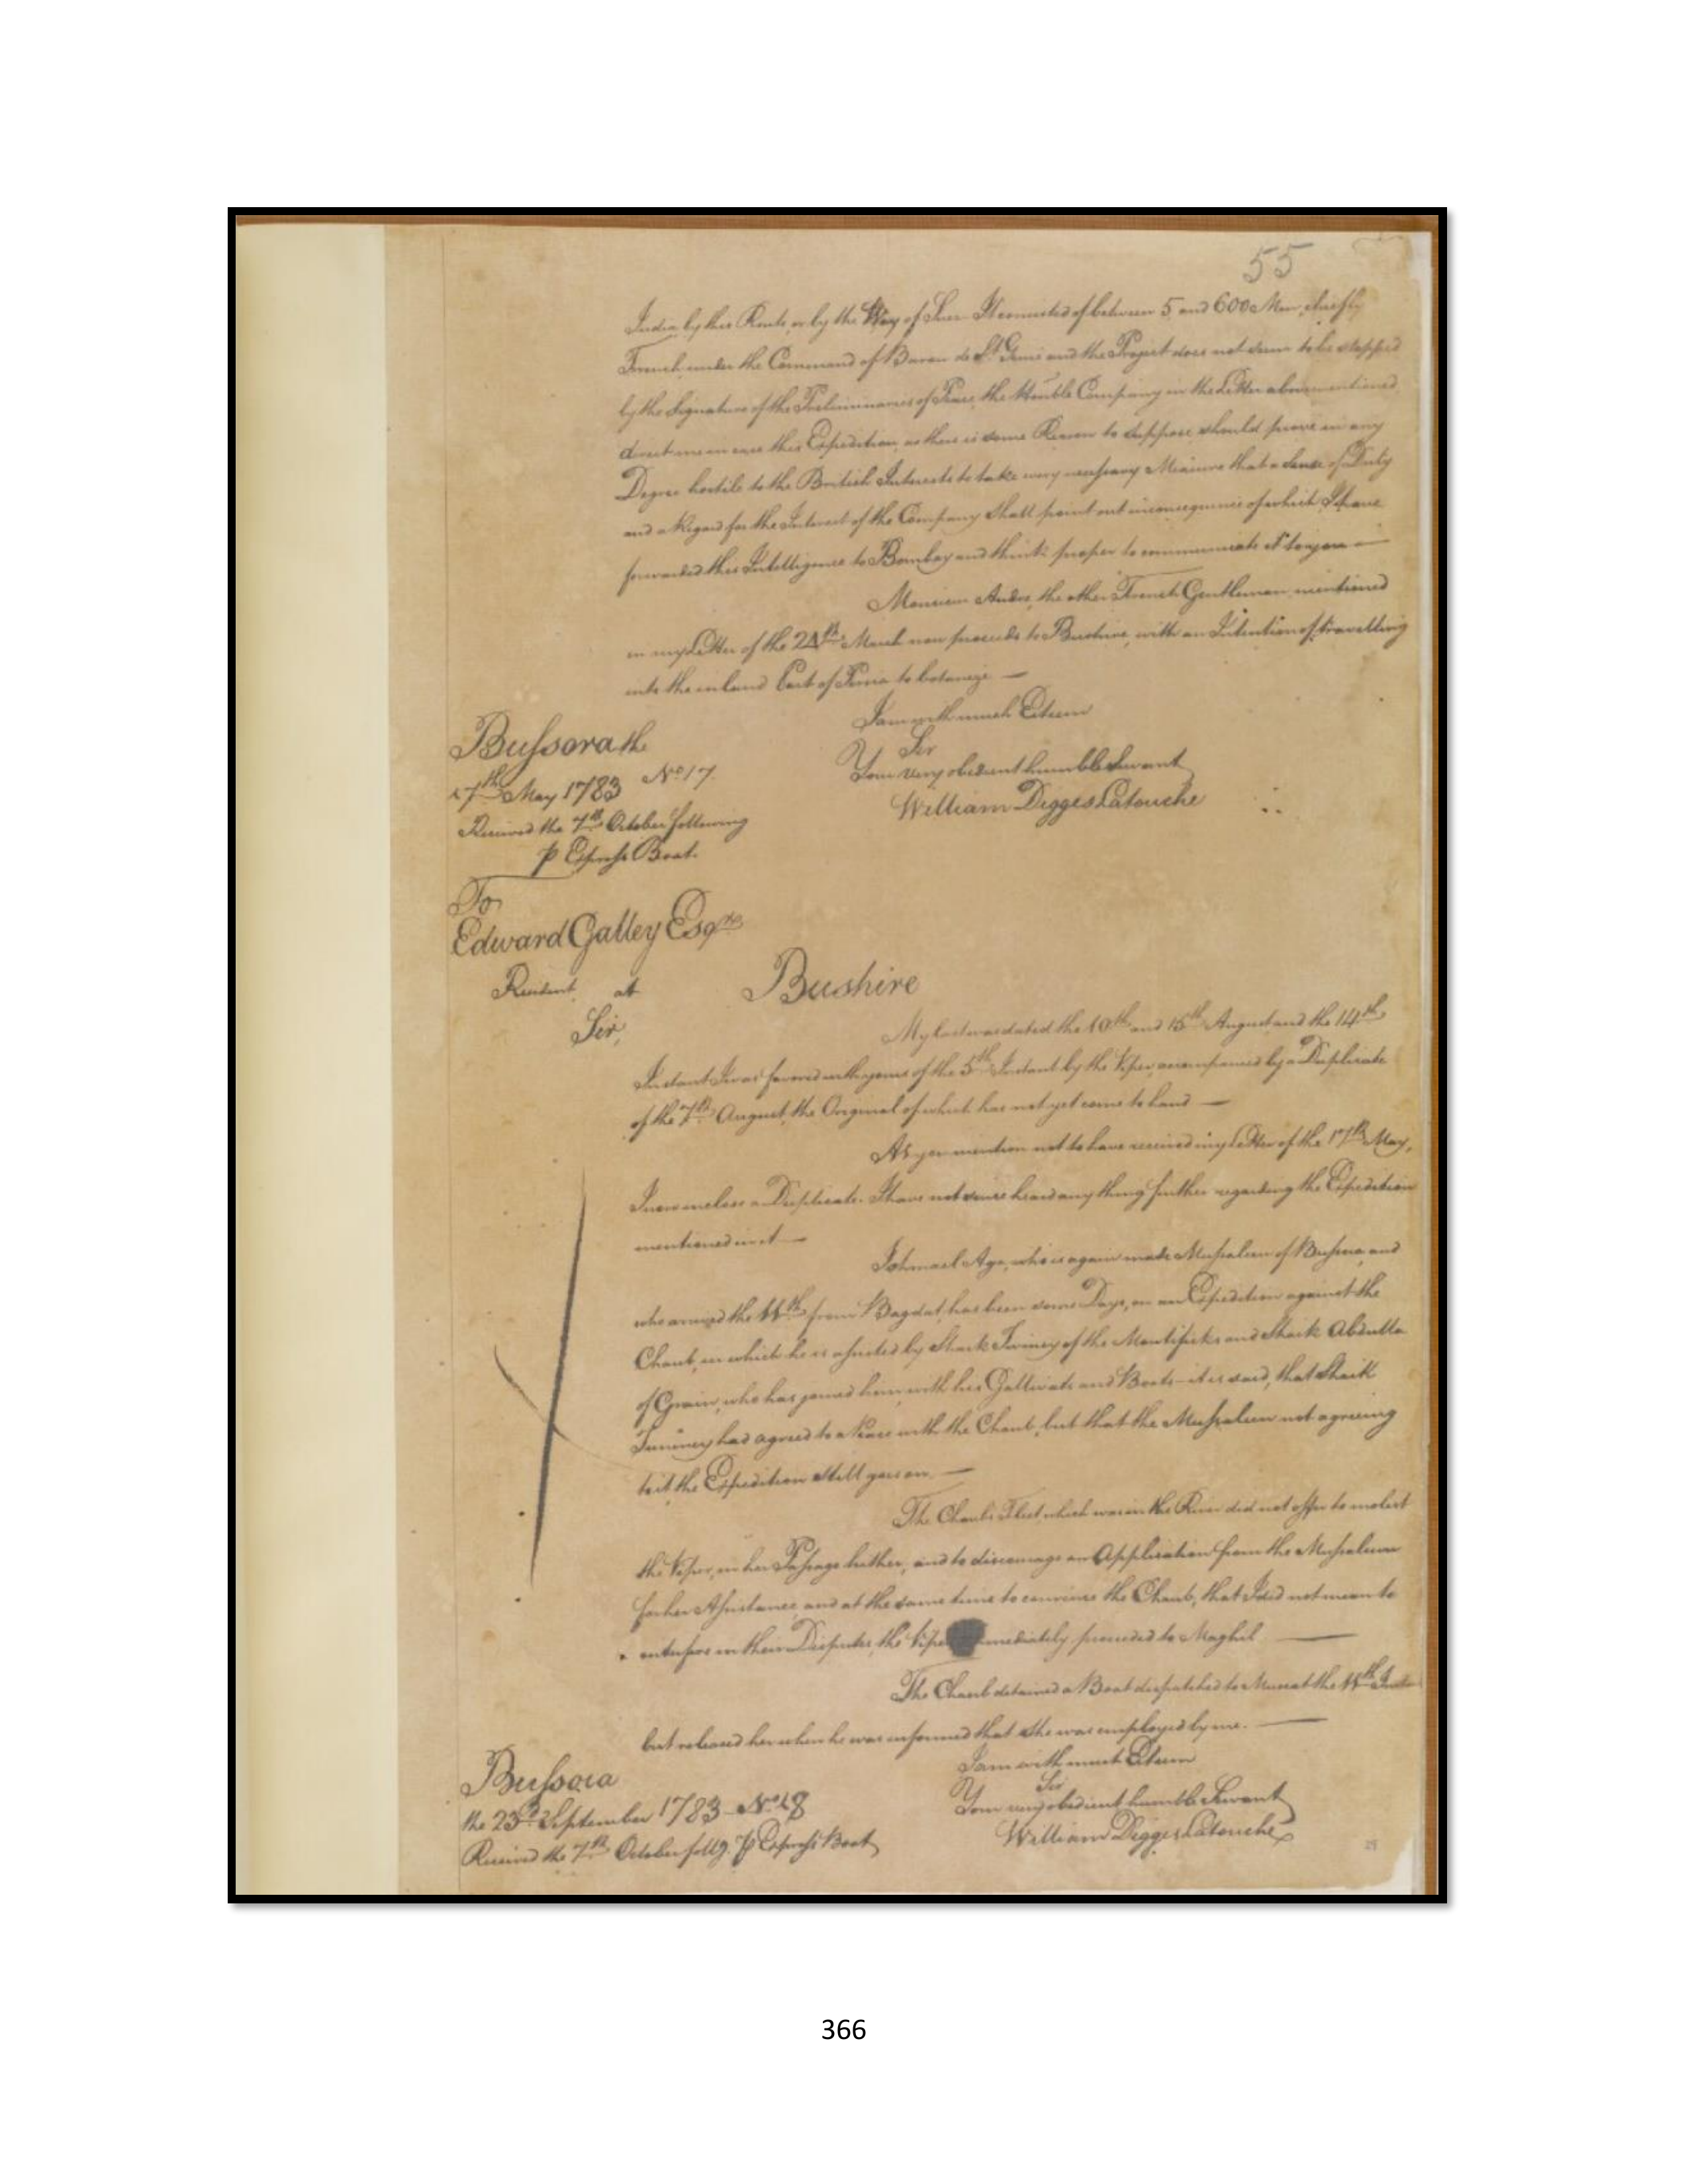 55
India by this Route, or by the Way of Suez. It consisted of between 5 and 600 Men, chiefly
French under the Command of Baron de St. Genie and the Project does not seem to be stopped
by the Signature of the Preliminaries of Peace, the Honble Company in the Letter abovementioned
direct me in case this Expedition, as there is some Reason to suppose should prove in any
Degree hostile to the British Interests to take every necessary Measure that a Sense of Duty
and a Regard for the Interest of the Company shall point out in consequence of which I have
forwarded this Intelligence to Bombay and think proper to communicate it to you
Monsieur Andre, the other French Gentleman mentioned
in my Letter of the 24th March now proceeds to Bushire, with an Intention of travelling
into the inland Part of Persia to botanize —
I am with much Esteem
Bussora the
Sir
Your very obedient humble Servant
17th May 1783 No. 17.
William Digges Latouche
Received the 7th October following
P Express Boat.
To
Edward Galley Esqre
Resident at Bushire
Sir,
My last was dated the 10th and 15th August and the 14th
Instant I was favored with yours of the 5th Instant by the Viper, accompanied by a Duplicate
of the 7th August, the Original of which has not yet come to hand —
As you mention not to have received my Letter of the 17th May,
I now inclose a Duplicate. I have not since heard any thing further regarding the Expedition
mentioned in it —
Ishmael Aga, who is again made Mussaleem of Bussora, and
who arrived the 11th from Bagdat, has been some Days, on an Expedition against the
Chaub, in which he is assisted by Shaik Twiney of the Montificks and Shaik Abdulla
of Grain, who has joined him with his Gallivats and Boats — it is said, that Shaik
Twiney had agreed to a Peace with the Chaub, but that the Mussaleem not agreeing
to it, the Expedition still goes on. —
The Chaub's Fleet, which was in the River did not offer to molest
the Viper, in her Passage hither, and to discourage an Application from the Mussaleem
for her Assistance, and at the same time to convince the Chaub, that I did not mean to
interfere in their Disputes, the Viper immediately proceeded to Maghil —
The Chaub detained a Boat dispatched to Muscat the 11th Instant
but released her when he was informed that she was employed by me. —
I am with much Esteem
Bussora
Sir
Your very obedient humble Servant
the 23d September 1783 - No. 18
William Digges Latouche
Received the 7th October follg. P Express Boat
366